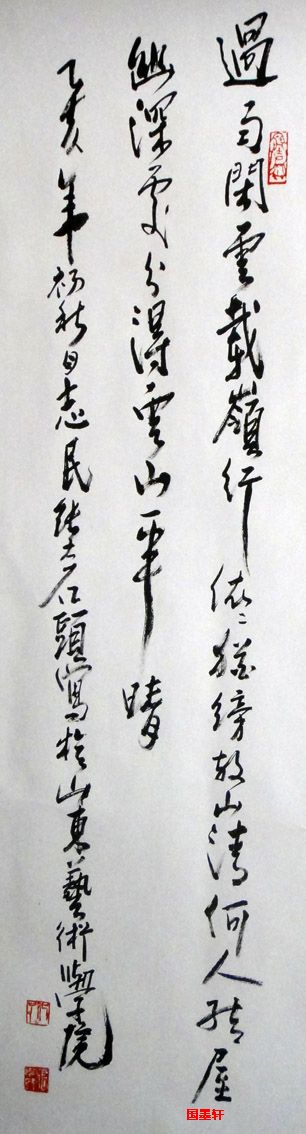 過雨閑雲載嶺行依〻猶傍故山清何人結屋
幽深處分得雲山一半晴
乙亥年初秋日志民張大石頭寫於山東藝術學院
国墨轩